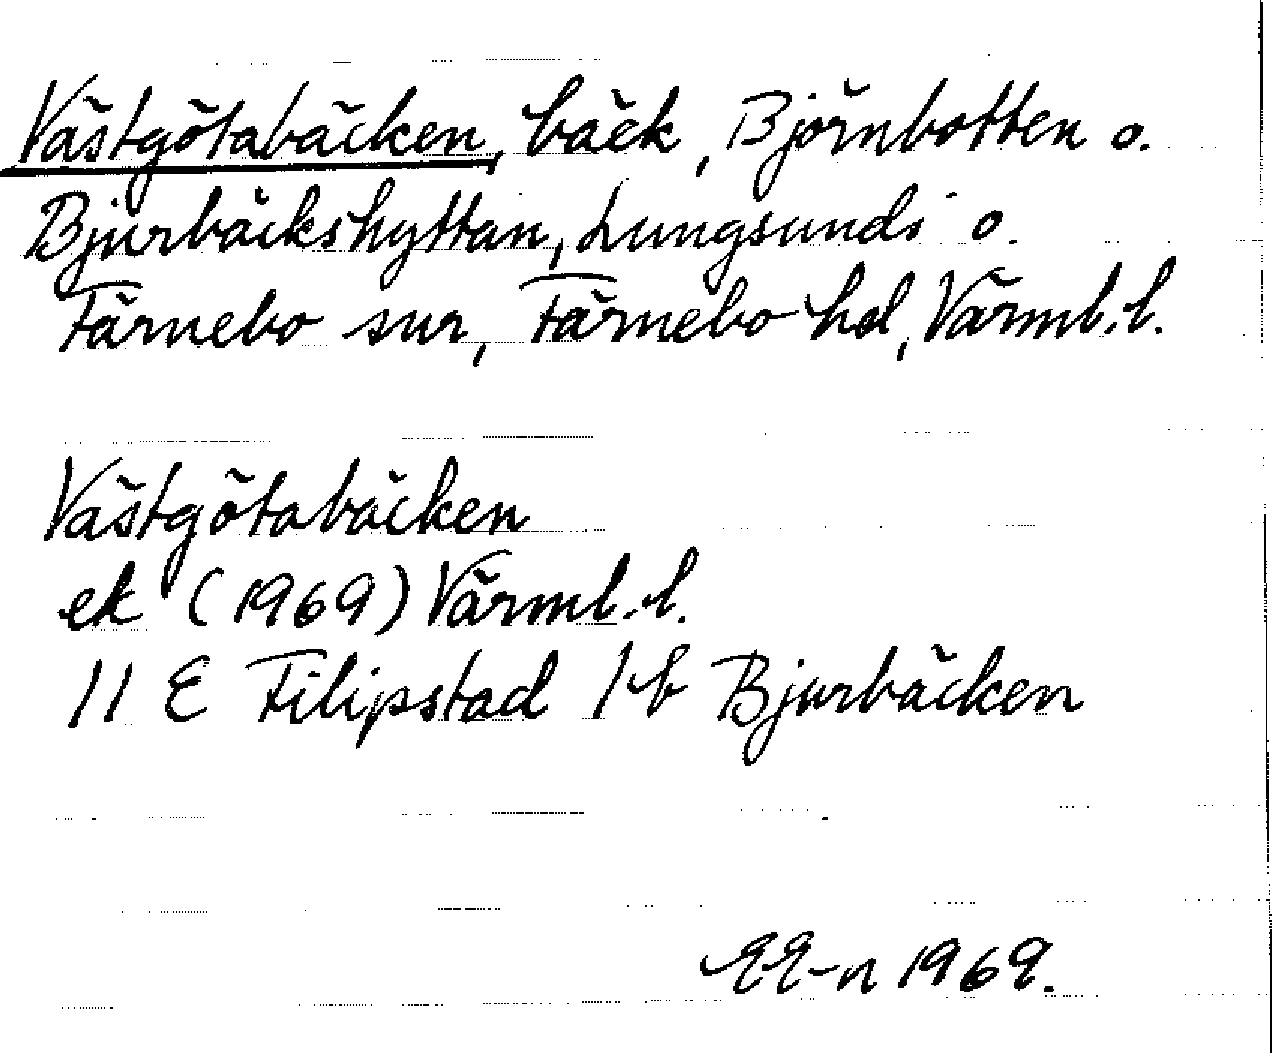 Västgötabäcken, bäck, Björnbotten o.
Bjurbäckshyttan, Lungsunds o.
Färnebo snr, Färnebo hd, Värml. l.
Västgötabäcken
ek (1969) Värml. l.
11 E Filipstad 1 b Bjurbäcken
1969.